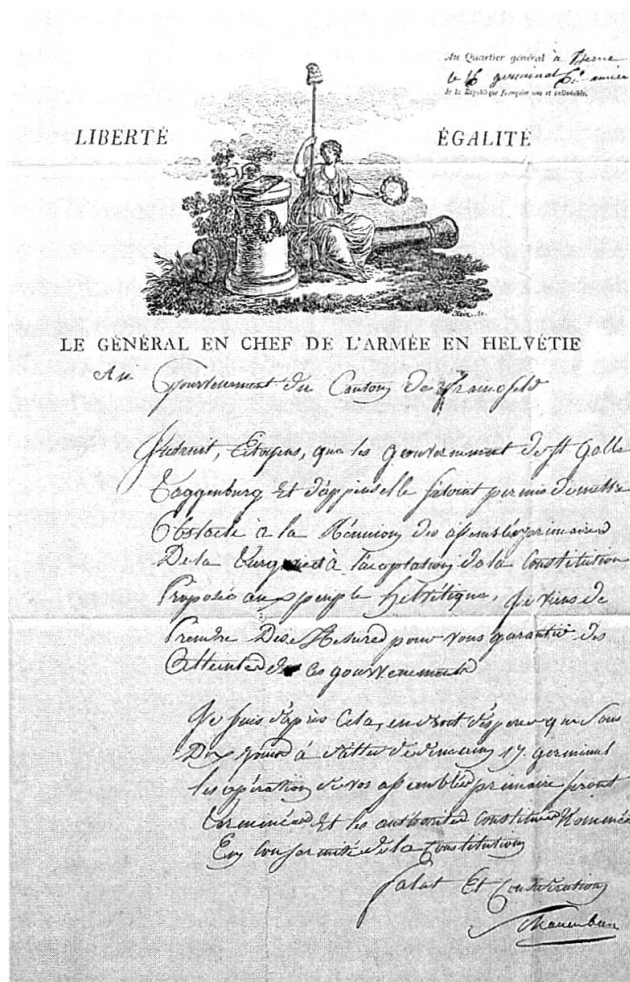 Au Quartier général à Berne
le 16 germinal 6e. année
de la République française une et indivisible.
LIBERTÉ ÉGALITÉ
LE GÉNÉRAL EN CHEF DE L'ARMÉE EN HELVÉTIE
Au Gouvernement du Canton de Frauenfeld
Instruit, Citoyens, que les Gouvernement de St Galle
Toggenburg Et d'appenselle s'étoient permis de mettre
Obstacle à la Réunion des assemblées primaires
De la Turgovie à l'acceptation de la Constitution
Proposée au peuple helvétique, je viens de
Prendre Des Mesures pour vous garantir des
Atteintes de ces gouvernements
Je suis d'après Cela, en droit d'espérer que Sous
Dix jours à datter de demain 17. germinal
les opérations de vos assemblées primaires seront
terminées Et les authorités Constituées Nommées
En Conformité de la Constitution
Salut Et Considération
Schauenburg